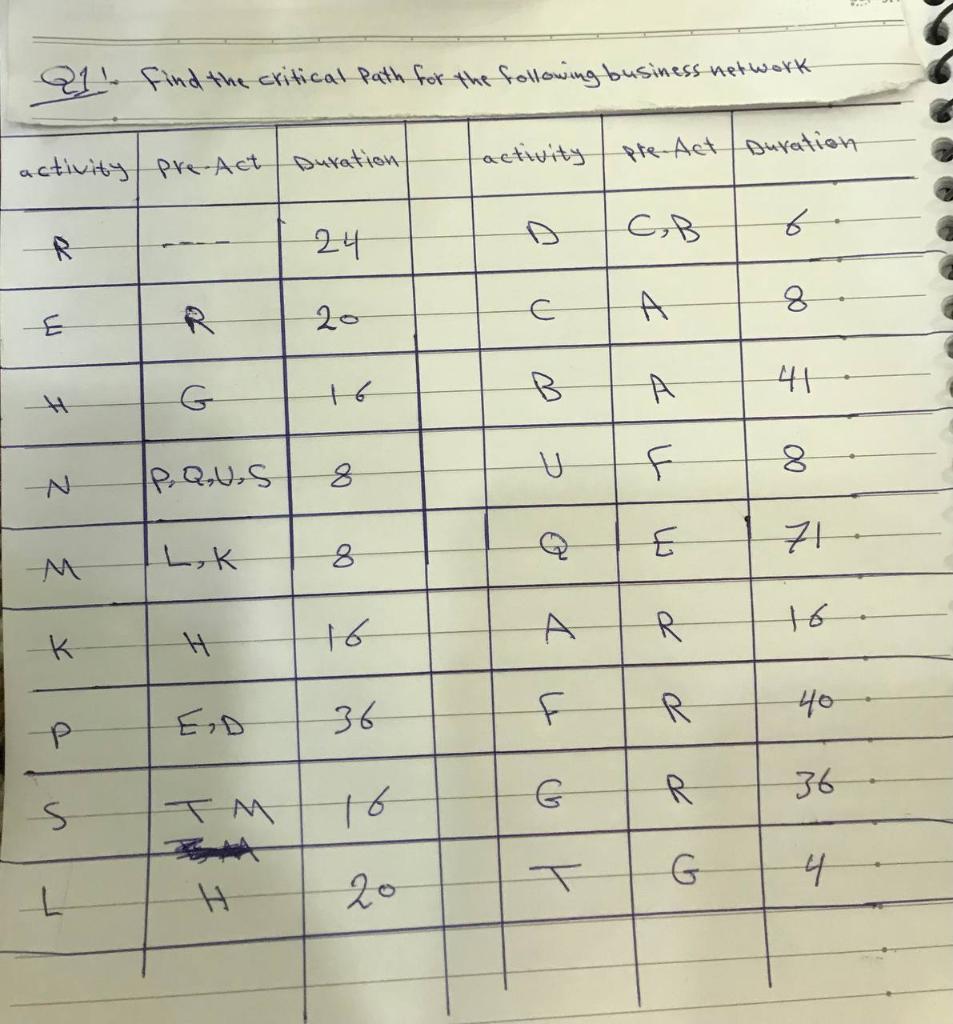 Q1:- Find the critical Path for the following business network
activity Pre-Act Duration activity Pre-Act Duration
R ---- 24 D C,B 6
E R 20 C A 8
H G 16 B A 41
N P,Q,U,S 8 U F 8
M L,K 8 Q E 71
K H 16 A R 16
P E,D 36 F R 40
S T M 16 G R 36
L H 20 T G 4